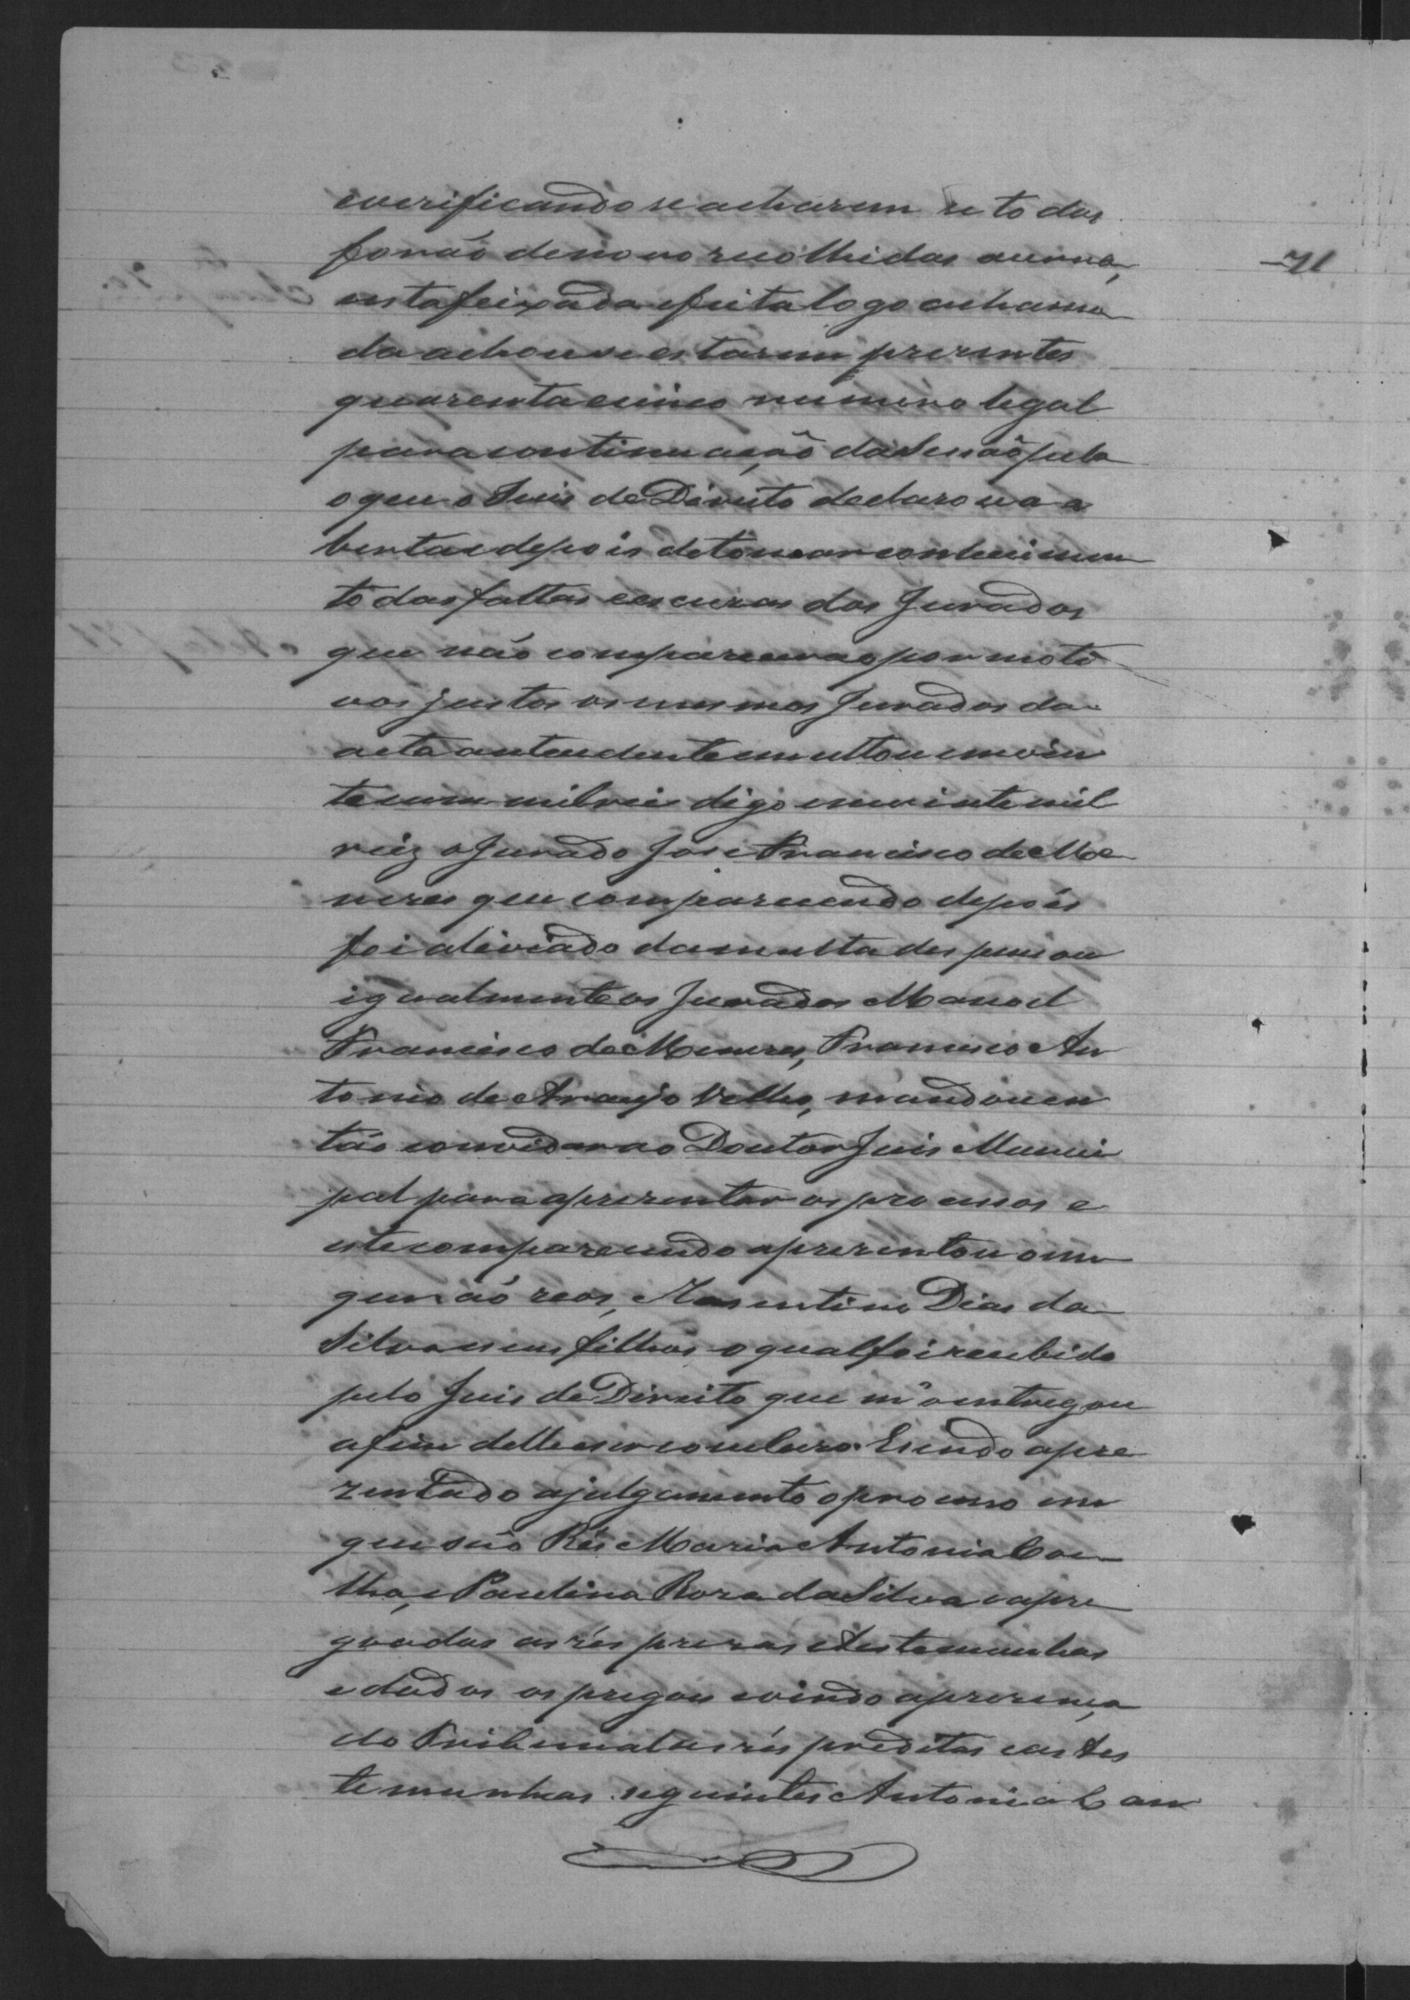 everificando se acharem se todas
forão denovo recolhidas aurna,
esta feixada efeita logo achama
da achouse estarem prezentes
quarenta ecinco numero legal
para continuação da Sessão pelo
oque o Juis de Direito declarou a a
berta edepois detomar conhecimen
to das faltas eescuzas dos Jurados
que não comparecerao por moti
vos justos os mesmos Jurados da
acta antecedente multou em vin
te um mil reis digo em vinte mil
reiz o Jurado José Francisco de Me
nezes que comparecendo depois
foi aliviado da multa despensou
igualmente os Jurados Manoel
Francisco de Menezes, Francisco An
tonio de Araujo Velho, mandou en
tão convidar ao Doutor Juis Munici
pal para aprezentar os processos e
este comparecendo aprezentou o em
que são reos, Rosentino Dias da
Silva e seus filhos o qual foi recebido
pelo Juis de Direito que m'o entregou
afim delle ser concluzo. E sendo apre
zentado a julgamento o processo em
que são Rés Maria Antonia Coe
lha, e Paulina Roza da Silva e apre
goadas as rés prezas e testemunhas
e dados os pregoes vindo a prezença
do Tribunal as rés preditas e as tes
temunhas seguintes Antonio Can
71